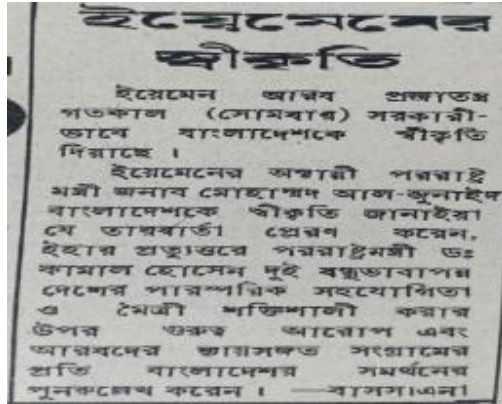 ইয়েমেনের
স্বীকৃতি
ইয়েমেন আরব প্রজাতন্ত্র
গতকাল (সোমবার) সরকারী-
ভাবে বাংলাদেশকে স্বীকৃতি
দিয়াছে ।
ইয়েমেনের অস্থায়ী পররাষ্ট্র
মন্ত্রী জনাব মোহাম্মদ আল-জুনাইদ
বাংলাদেশকে স্বীকৃতি জানাইয়া
যে তারবার্তা প্রেরণ করেন,
ইহার প্রত্যুত্তরে পররাষ্ট্রমন্ত্রী ডঃ
কামাল হোসেন দুই বন্ধুভাবাপন্ন
দেশের পারস্পরিক সহযোগিতা
ও মৈত্রী শক্তিশালী করার
উপর গুরুত্ব আরোপ এবং
আরবদের ন্যায়সঙ্গত সংগ্রামের
প্রতি বাংলাদেশের সমর্থনের
পুনরুল্লেখ করেন । —বাসস।এনা